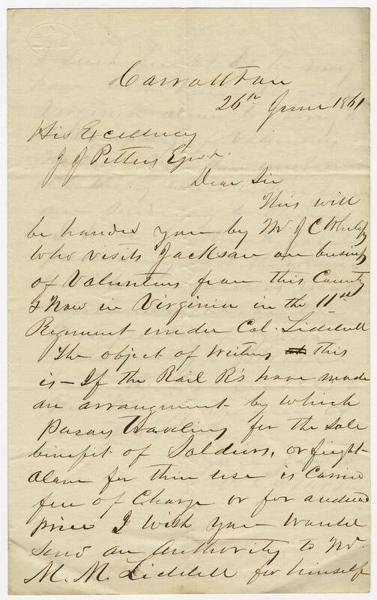 Carrollton
26th June 1861
His Excellency
J J Pettus Esqr.
Dear Sir
This will
be handed you by Mr J C
who visits Jackson on business
of Volunteers from this County
& Now in Virginia in the 11th
Regiment under Col. Liddell
The object of writing this
is - If the Rail R's have made
an arrangment by which
Persons Traveling for the Sole
benefit of Soldiers, or freight
alone for their use is Carried
free of Charge or for a reduced
price I wish you would
send an Authority to Mr.
M. M. Liddell for himself